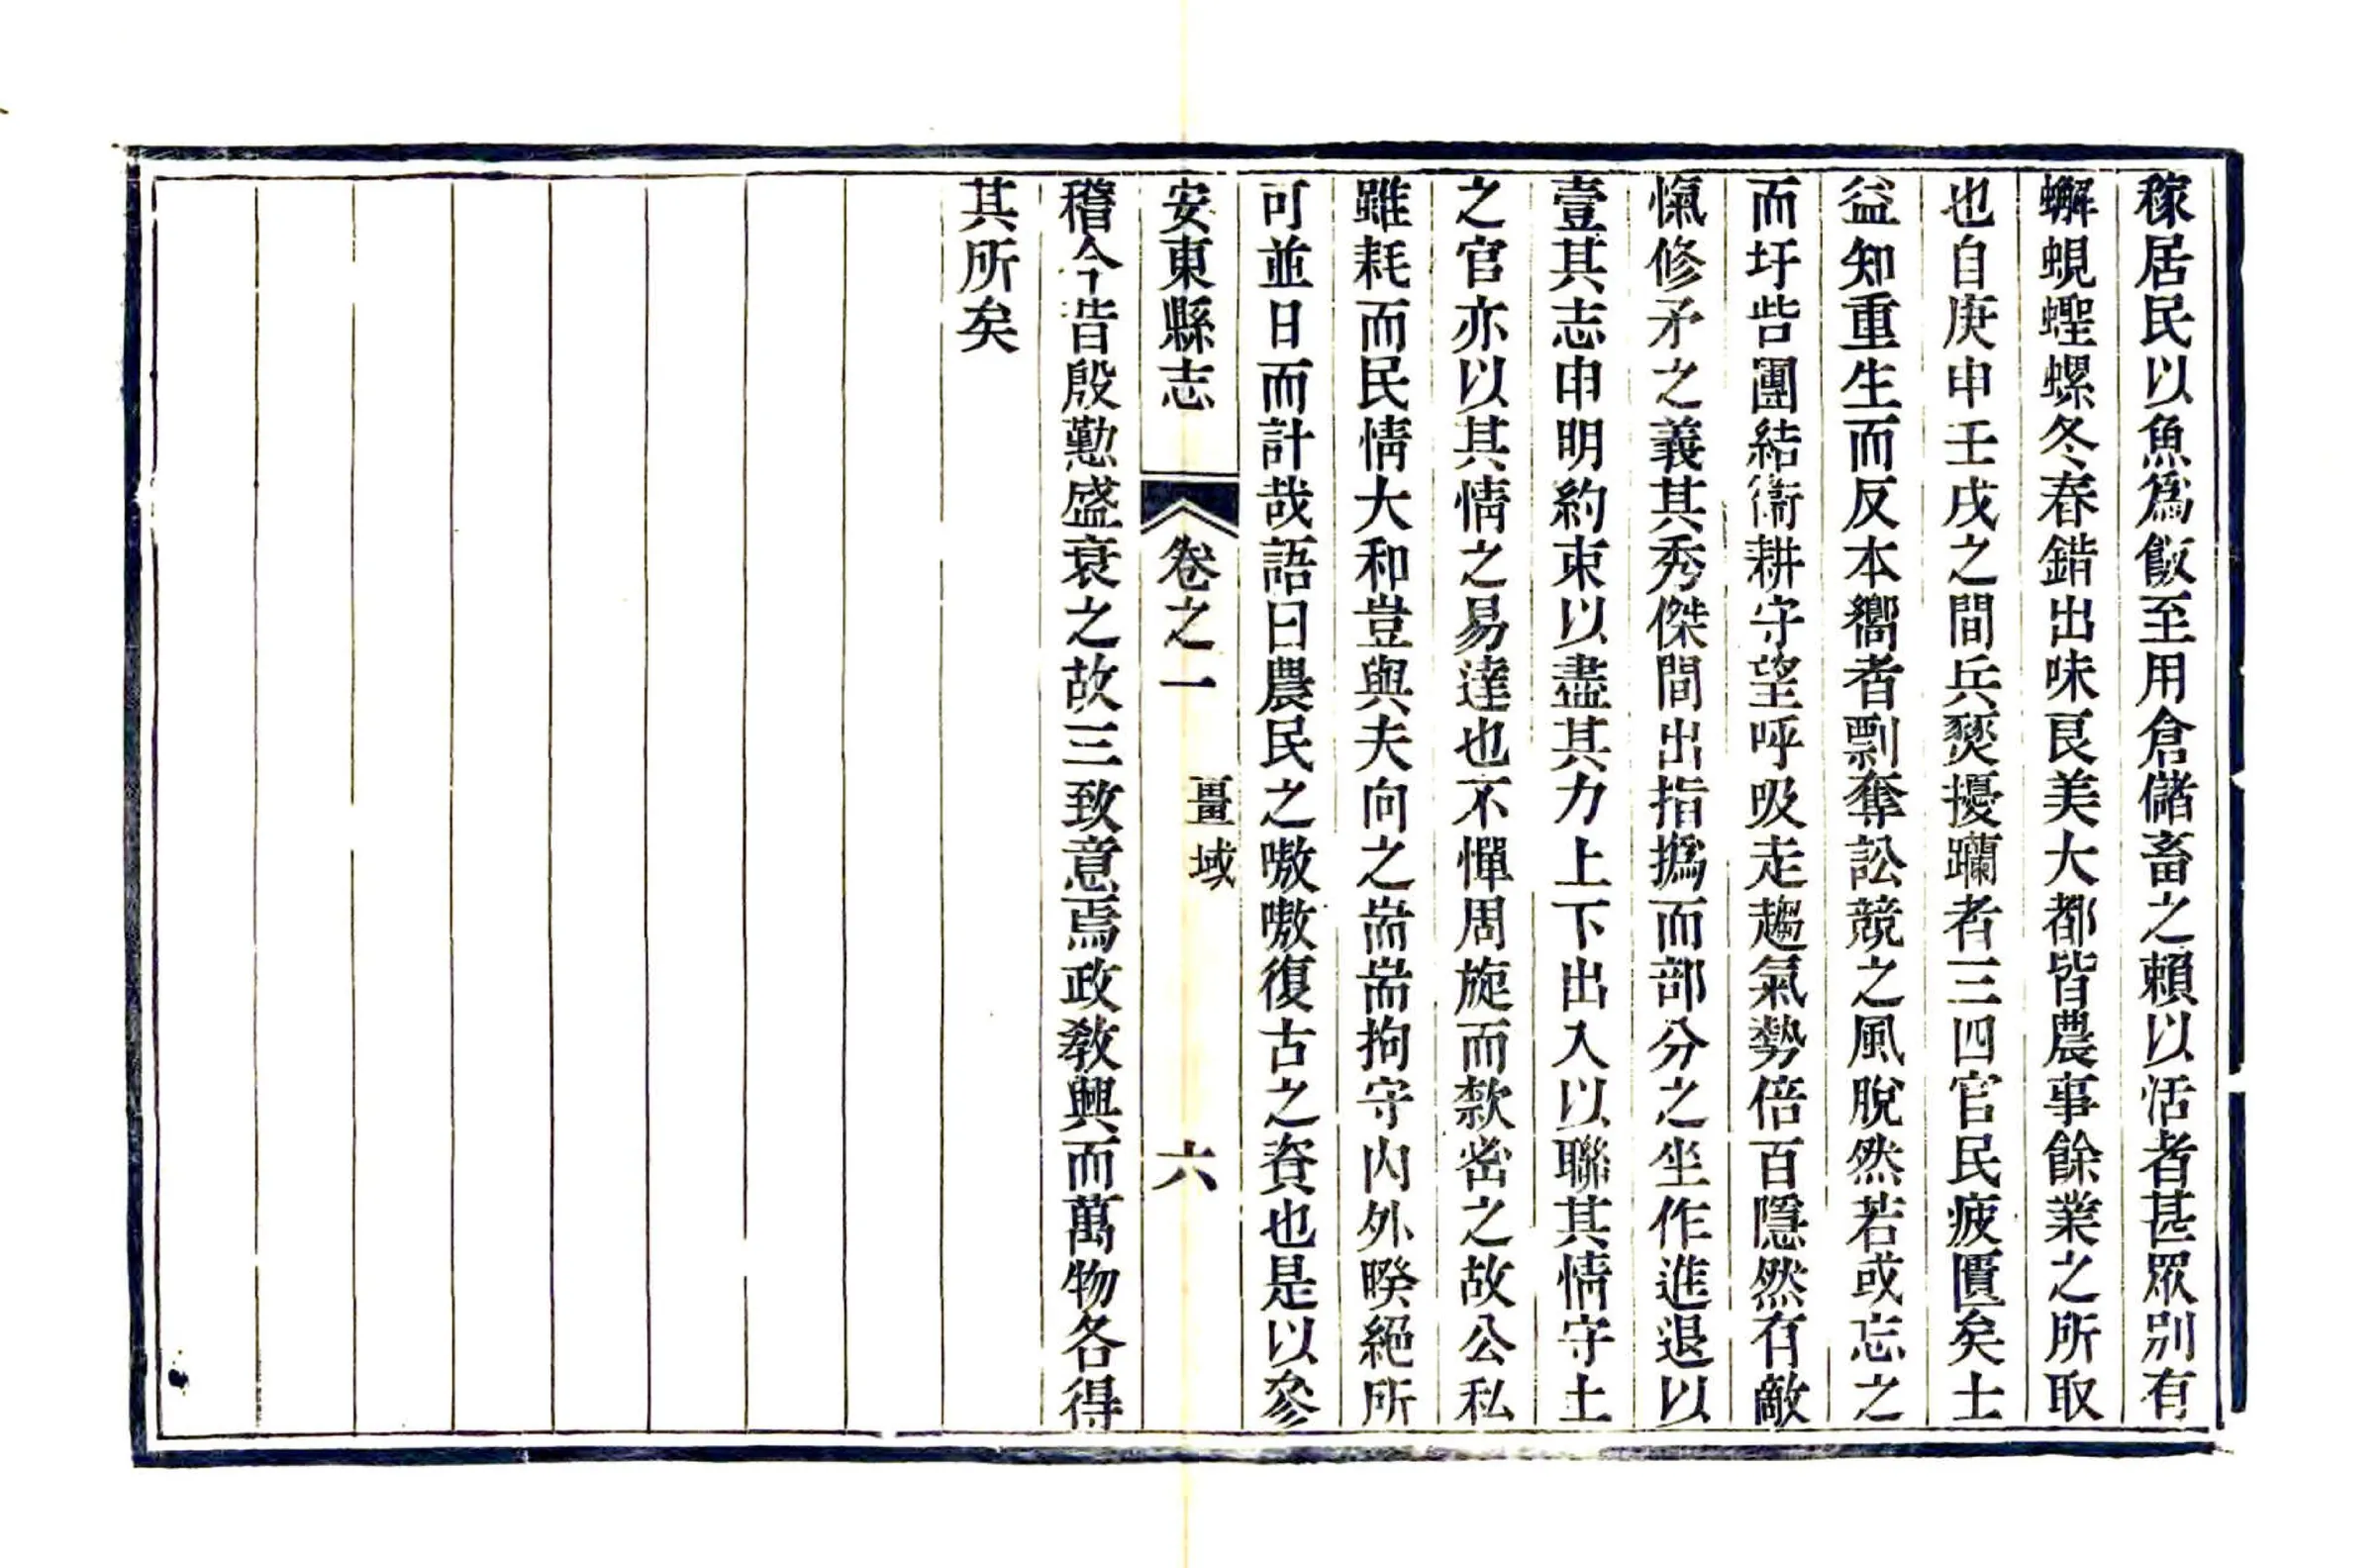 稼居民以魚爲飯至用倉儲畜之賴以活者甚眾别有
蠏蜆蟶螺冬春錯出味良美大都皆農事餘業之所取
也自庚申壬戌之間兵燹擾躙者三四官民疲匱矣士
益知重生而反本嚮者剽奪訟競之風脫然若或忘之
而圩砦團結衞耕守望呼吸走趨氣勢倍百隱然有敵
愾修矛之義其秀傑間出指撝而部分之坐作進退以
壹其志申明約束以盡其力上下出入以聯其情守土
之官亦以其情之易達也不憚周旋而款密之故公私
雖耗而民情大和豈與夫向之耑耑拘守內外暌絕所
可並日而計哉語曰農民之嗷嗷復古之資也是以參
安東縣志 卷之一 畺域 六
稽今昔殷懃盛衰之故三致意焉政敎興而萬物各得
其所矣